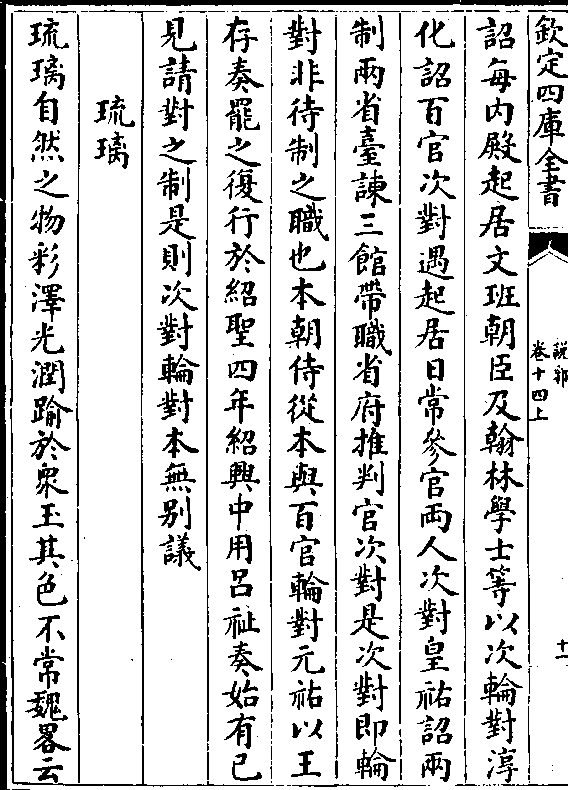 欽定四庫全書
説郛
卷十四上
十二
詔每内殿起居文班朝臣及翰林學士等以次輪對淳
化詔百官次對遇起居日常參官兩人次對皇祐詔兩
制兩省臺諫三館帶職省府推判官次對是次對即輪
對非待制之職也本朝侍從本與百官輪對元祐以王
存奏罷之復行於紹聖四年紹興中用呂祉奏始有已
見請對之制是則次對輪對本無别議
琉璃
琉璃自然之物彩澤光潤踰於衆玉其色不常魏畧云